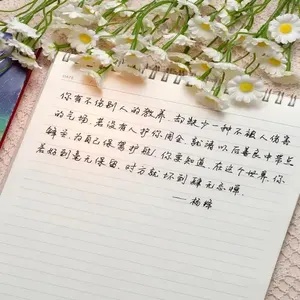 你有不伤别人的教养，却缺少一种不被人伤害
的气场，若没有人护你周全，就请以后善良中带点
锋芒，为自己保驾护航，你要知道，在这个世界，你
若好到毫无保留，对方就坏到肆无忌惮。
——杨绛